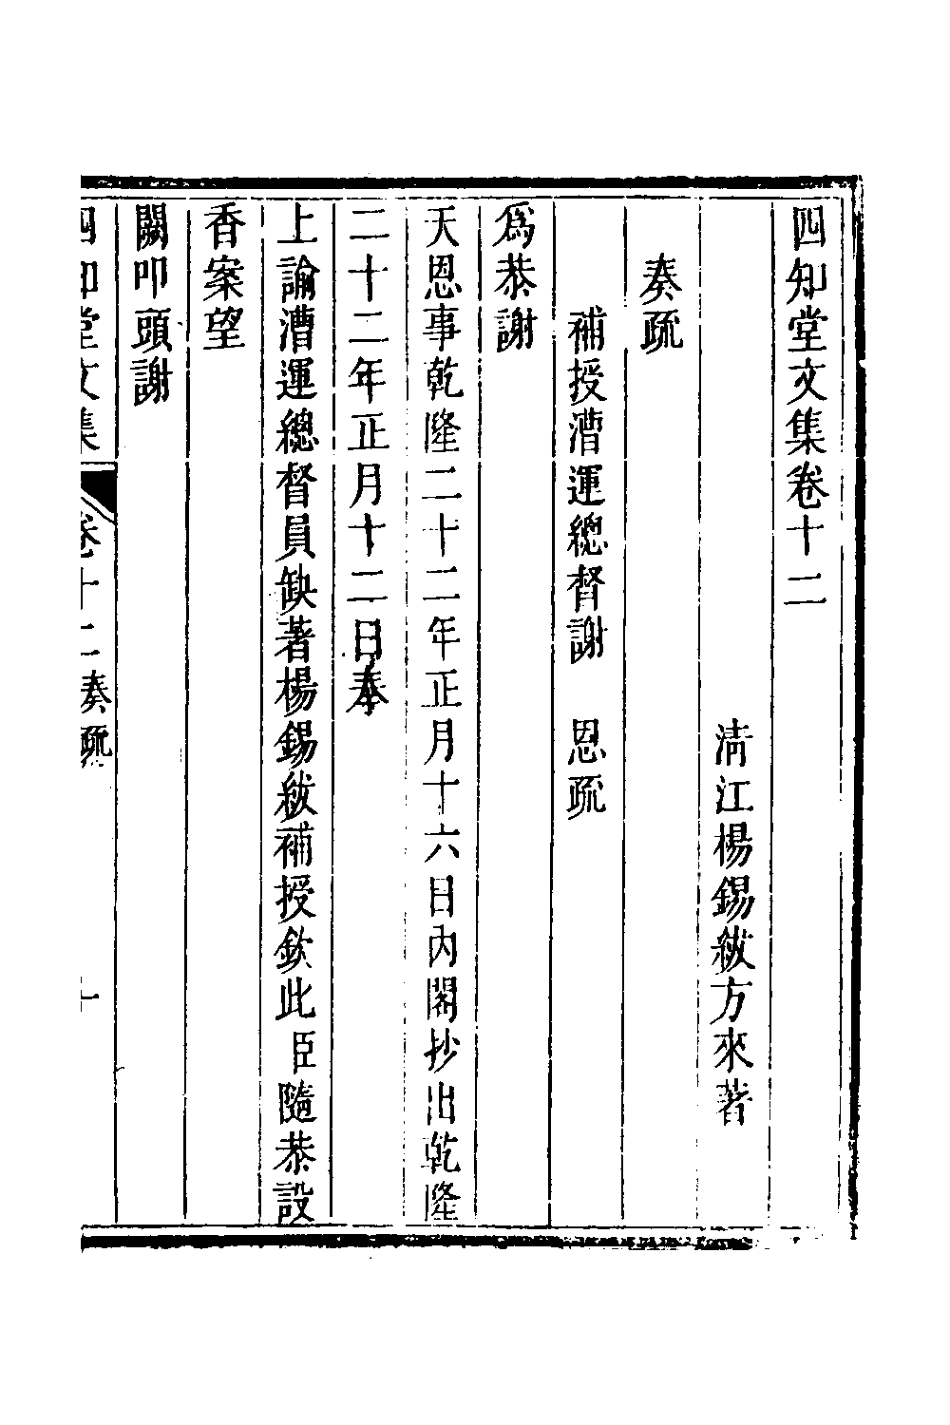 四知堂文集卷十二
清江楊錫紱方來著
奏疏
補授漕運總督謝　恩疏
爲恭謝
天恩事乾隆二十二年正月十六日內閣抄出乾隆
二十二年正月十二日奉
上諭漕運總督員缺著楊錫紱補授欽此臣隨恭設
香案望
闕叩頭謝
四知堂文集
卷十二奏疏
一